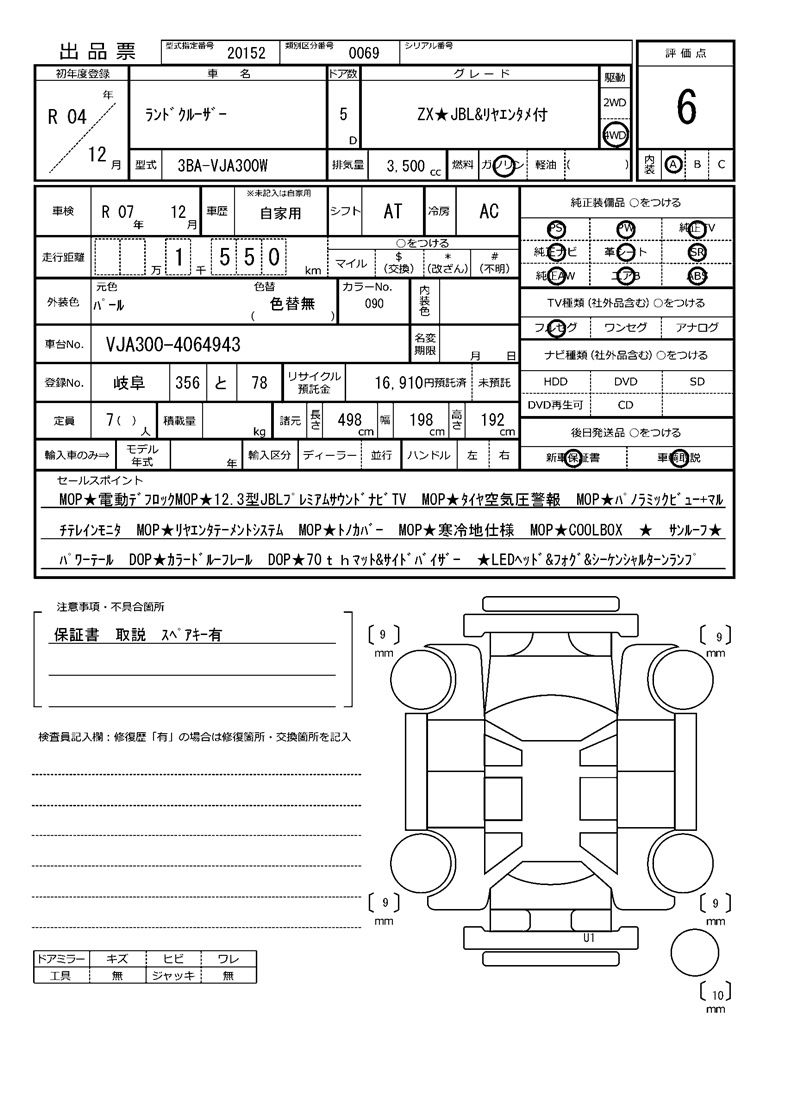 出品票 型式指定番号 20152 類別区分番号 0069 シリアル番号
評価点
6
内装 Ⓐ B C
初年度登録 車名 ドア数 グレード 駆動
R 04 年 12 月 ランドクルーザー 5 D ZX★JBL&リヤエンタメ付 2WD 4WD
型式 3BA-VJA300W 排気量 3,500 cc 燃料 ガソリン 軽油 ( )
車検 R 07 年 12 月 車歴 ※未記入は自家用 自家用 シフト AT 冷房 AC
走行距離 万 1 千 5 5 0 km ○をつける
マイル $(交換) *(改ざん) #(不明)
外装色 元色 パール 色替 色替無 ( ) カラーNo. 090 内装色
車台No. VJA300-4064943 名変期限 月 日
登録No. 岐阜 356 と 78 リサイクル預託金 16,910円預託済 未預託
定員 7( ) 人 積載量 kg 諸元 長さ 498 cm 幅 198 cm 高さ 192 cm
輸入車のみ⇒ モデル年式 年 輸入区分 ディーラー 並行 ハンドル 左 右
純正装備品 ○をつける
PS PW 純正TV
純正ナビ 革シート SR
純正AW エアB ABS
TV種類(社外品含む) ○をつける
フルセグ ワンセグ アナログ
ナビ種類(社外品含む) ○をつける
HDD DVD SD
DVD再生可 CD
後日発送品 ○をつける
新車保証書 車輌取説
セールスポイント
MOP★電動デフロックMOP★12.3型JBLプレミアムサウンドナビTV MOP★タイヤ空気圧警報 MOP★パノラミックビュー+マル
チテレインモニタ MOP★リヤエンタテーメントシステム MOP★トノカバー MOP★寒冷地仕様 MOP★COOLBOX ★ サンルーフ★
パワーテール DOP★カラードルーフレール DOP★70thマット&サイドバイザー ★LEDヘッド&フォグ&シーケンシャルターンランプ
注意事項・不具合箇所
保証書 取説 スペアキー有
検査員記入欄:修復歴「有」の場合は修復箇所・交換箇所を記入
ドアミラー キズ ヒビ ワレ
工具 無 ジャッキ 無
[ 9 ] mm
[ 9 ] mm
[ 9 ] mm
[ 9 ] mm
U1
[ 10 ] mm